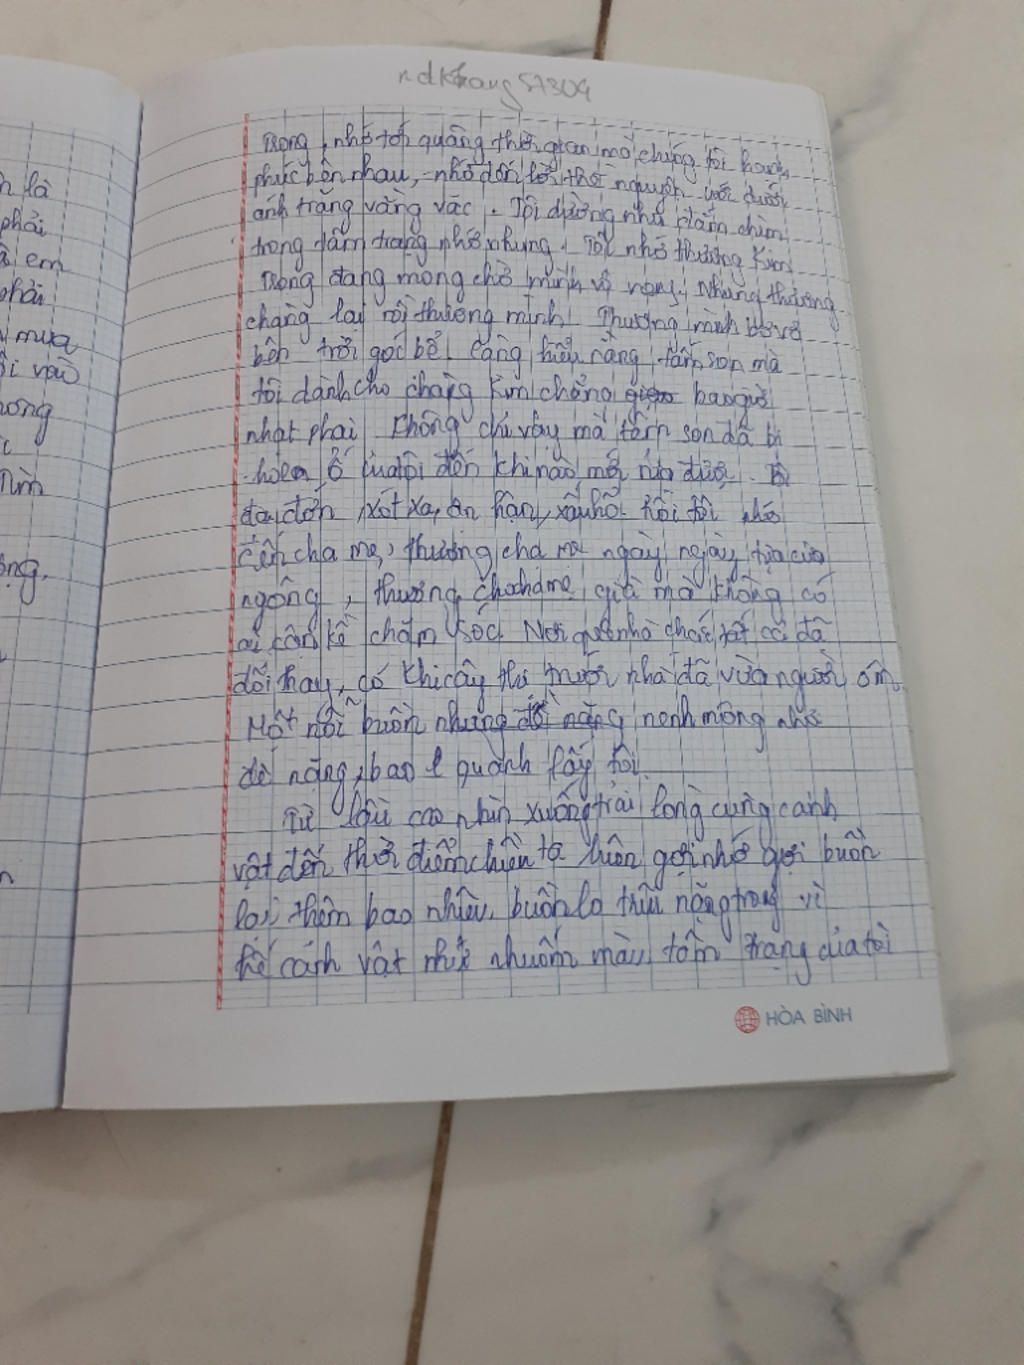 ndKhang57304
Trọng, nhớ tới quãng thời gian mà chúng tôi hạnh
phúc bên nhau, nhớ đến lời thề nguyện ước dưới
ánh trăng vàng vặc. Tôi dường như đắm chìm
trong tâm trạng nhớ nhung. Tôi nhớ thương Kim
Trọng đang mong chờ mình vô vọng. Nhưng thương
chàng lại rồi thương mình. Thương mình bơ vơ
bên trời góc bể. Càng hiểu càng tấm son mà
tôi dành cho chàng Kim chẳng bao giờ
nhạt phai. Không chỉ vậy mà tấm son đã bị
hoen ố của tôi đến khi nào mới rửa được. Tôi
đau đớn, xót xa, ân hận, xấu hổ. Rồi tôi nhớ
đến cha mẹ, thương cha mẹ ngày ngày tựa cửa
ngóng, thương cho cha mẹ già mà không có
ai cận kề chăm sóc. Nơi quê nhà chắc tất cả đã
đổi thay, có khi cây thị trước nhà đã vừa người ôm.
Một nỗi buồn nhưng đè nặng mênh mông nhớ
đè nặng, bao quanh lấy tôi.
Từ lầu cao nhìn xuống trải lòng cùng cảnh
vật đến thời điểm chiều tà luôn gợi nhớ gợi buồn
lại thêm bao nhiêu buồn lo trĩu nặng trong vì
thế cảnh vật như nhuốm màu tâm trạng của tôi
HÒA BÌNH
là
phải
em
phải
mưa
vào
ương
Tìm